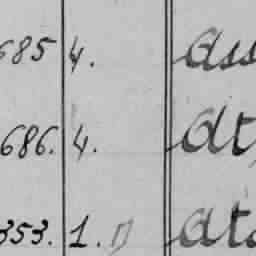 685 4. Ass
686. 4. dt
353. 1. dto